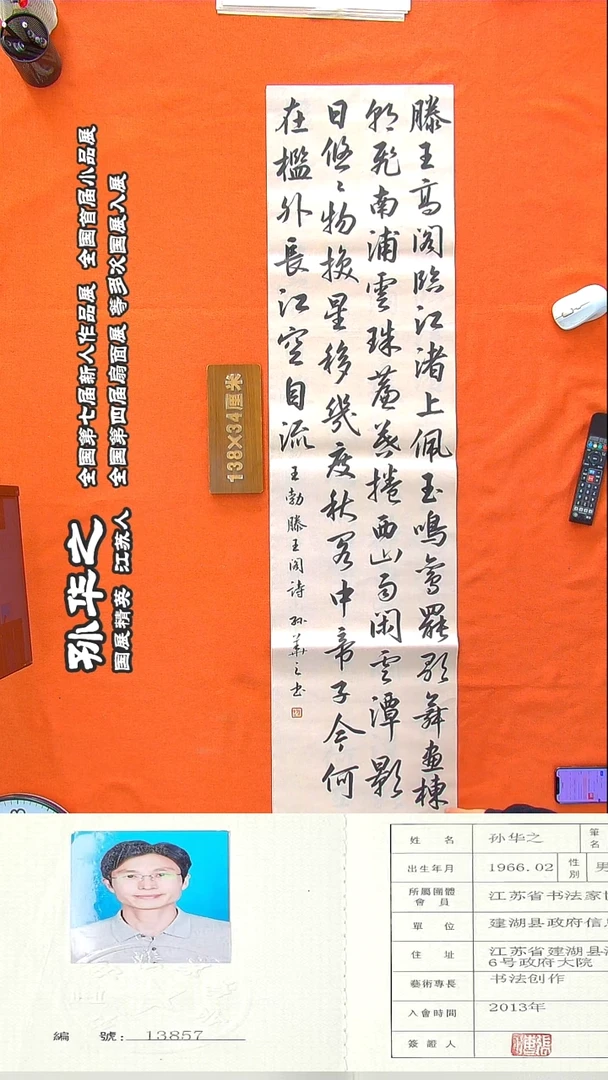 滕王高阁臨江渚上佩玉鳴鸞罷歌舞畫棟
朝飛南浦雲珠簾暮捲西山雨闲雲潭影
日悠々物換星移幾度秋閣中帝子今何
在檻外長江空自流
王勃滕王阁诗 孙華之书
138×34厘米
孙华之
国展精英 江苏人
全国第七届新人作品展 全国首届小品展
全国第四届扇面展 等多次国展入展
編 號: 13857
姓 名 孙华之 筆名
出生年月 1966.02 性別 男
所屬團體會員 江苏省书法家
單 位 建湖县政府信
住 址 江苏省建湖县
6号政府大院
藝術專長 书法创作
入會時間 2013年
簽證人